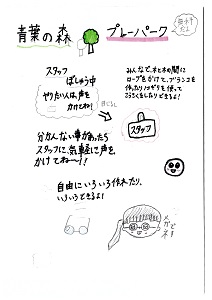 青葉の森 プレーパーク
スタッフ
ぼしゅう中
やりたい人は、声を
かけてね!
みんなで、木と木の間に
ロープをかけて、ブランコを
作ったりノコギリを使って
こうさくをしたりできるよ!
目じるし
スタッフ
分かんない事があったら
スタッフに、気軽に声を、
かけてね〜!!
自由にいろいろ作れたり、
いろいろできるよ!
メガネ
です